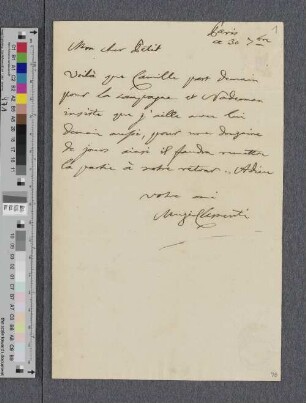 Paris 1
ce 30 7bre
Mon cher Petit
Voilà que Camille part demain
pour la campagne et Naderman
insiste que j'aille avec lui
demain aussi, pour une dizaine
de jours ainsi il faudra remettre
la partie à notre retour. Adieu
votre ami
Muzio Clementi